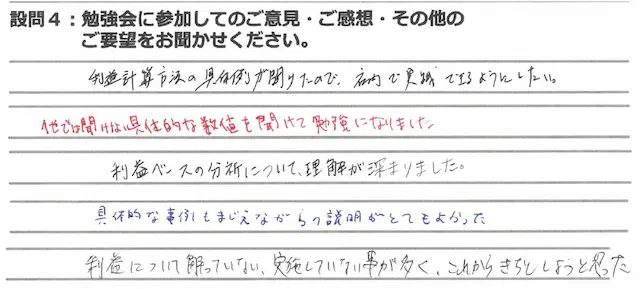 設問4:勉強会に参加してのご意見・ご感想・その他の
ご要望をお聞かせください。
利益計算方法の具体例が聞けたので、店内で実践できるようにしたい。
他では聞けない具体的な数値を聞けて勉強になりました
利益ベースの分析について、理解が深まりました。
具体的な事例もまじえながらの説明がとてもよかった
利益について解っていない、実施していない事が多く、これからきちとしようと思った